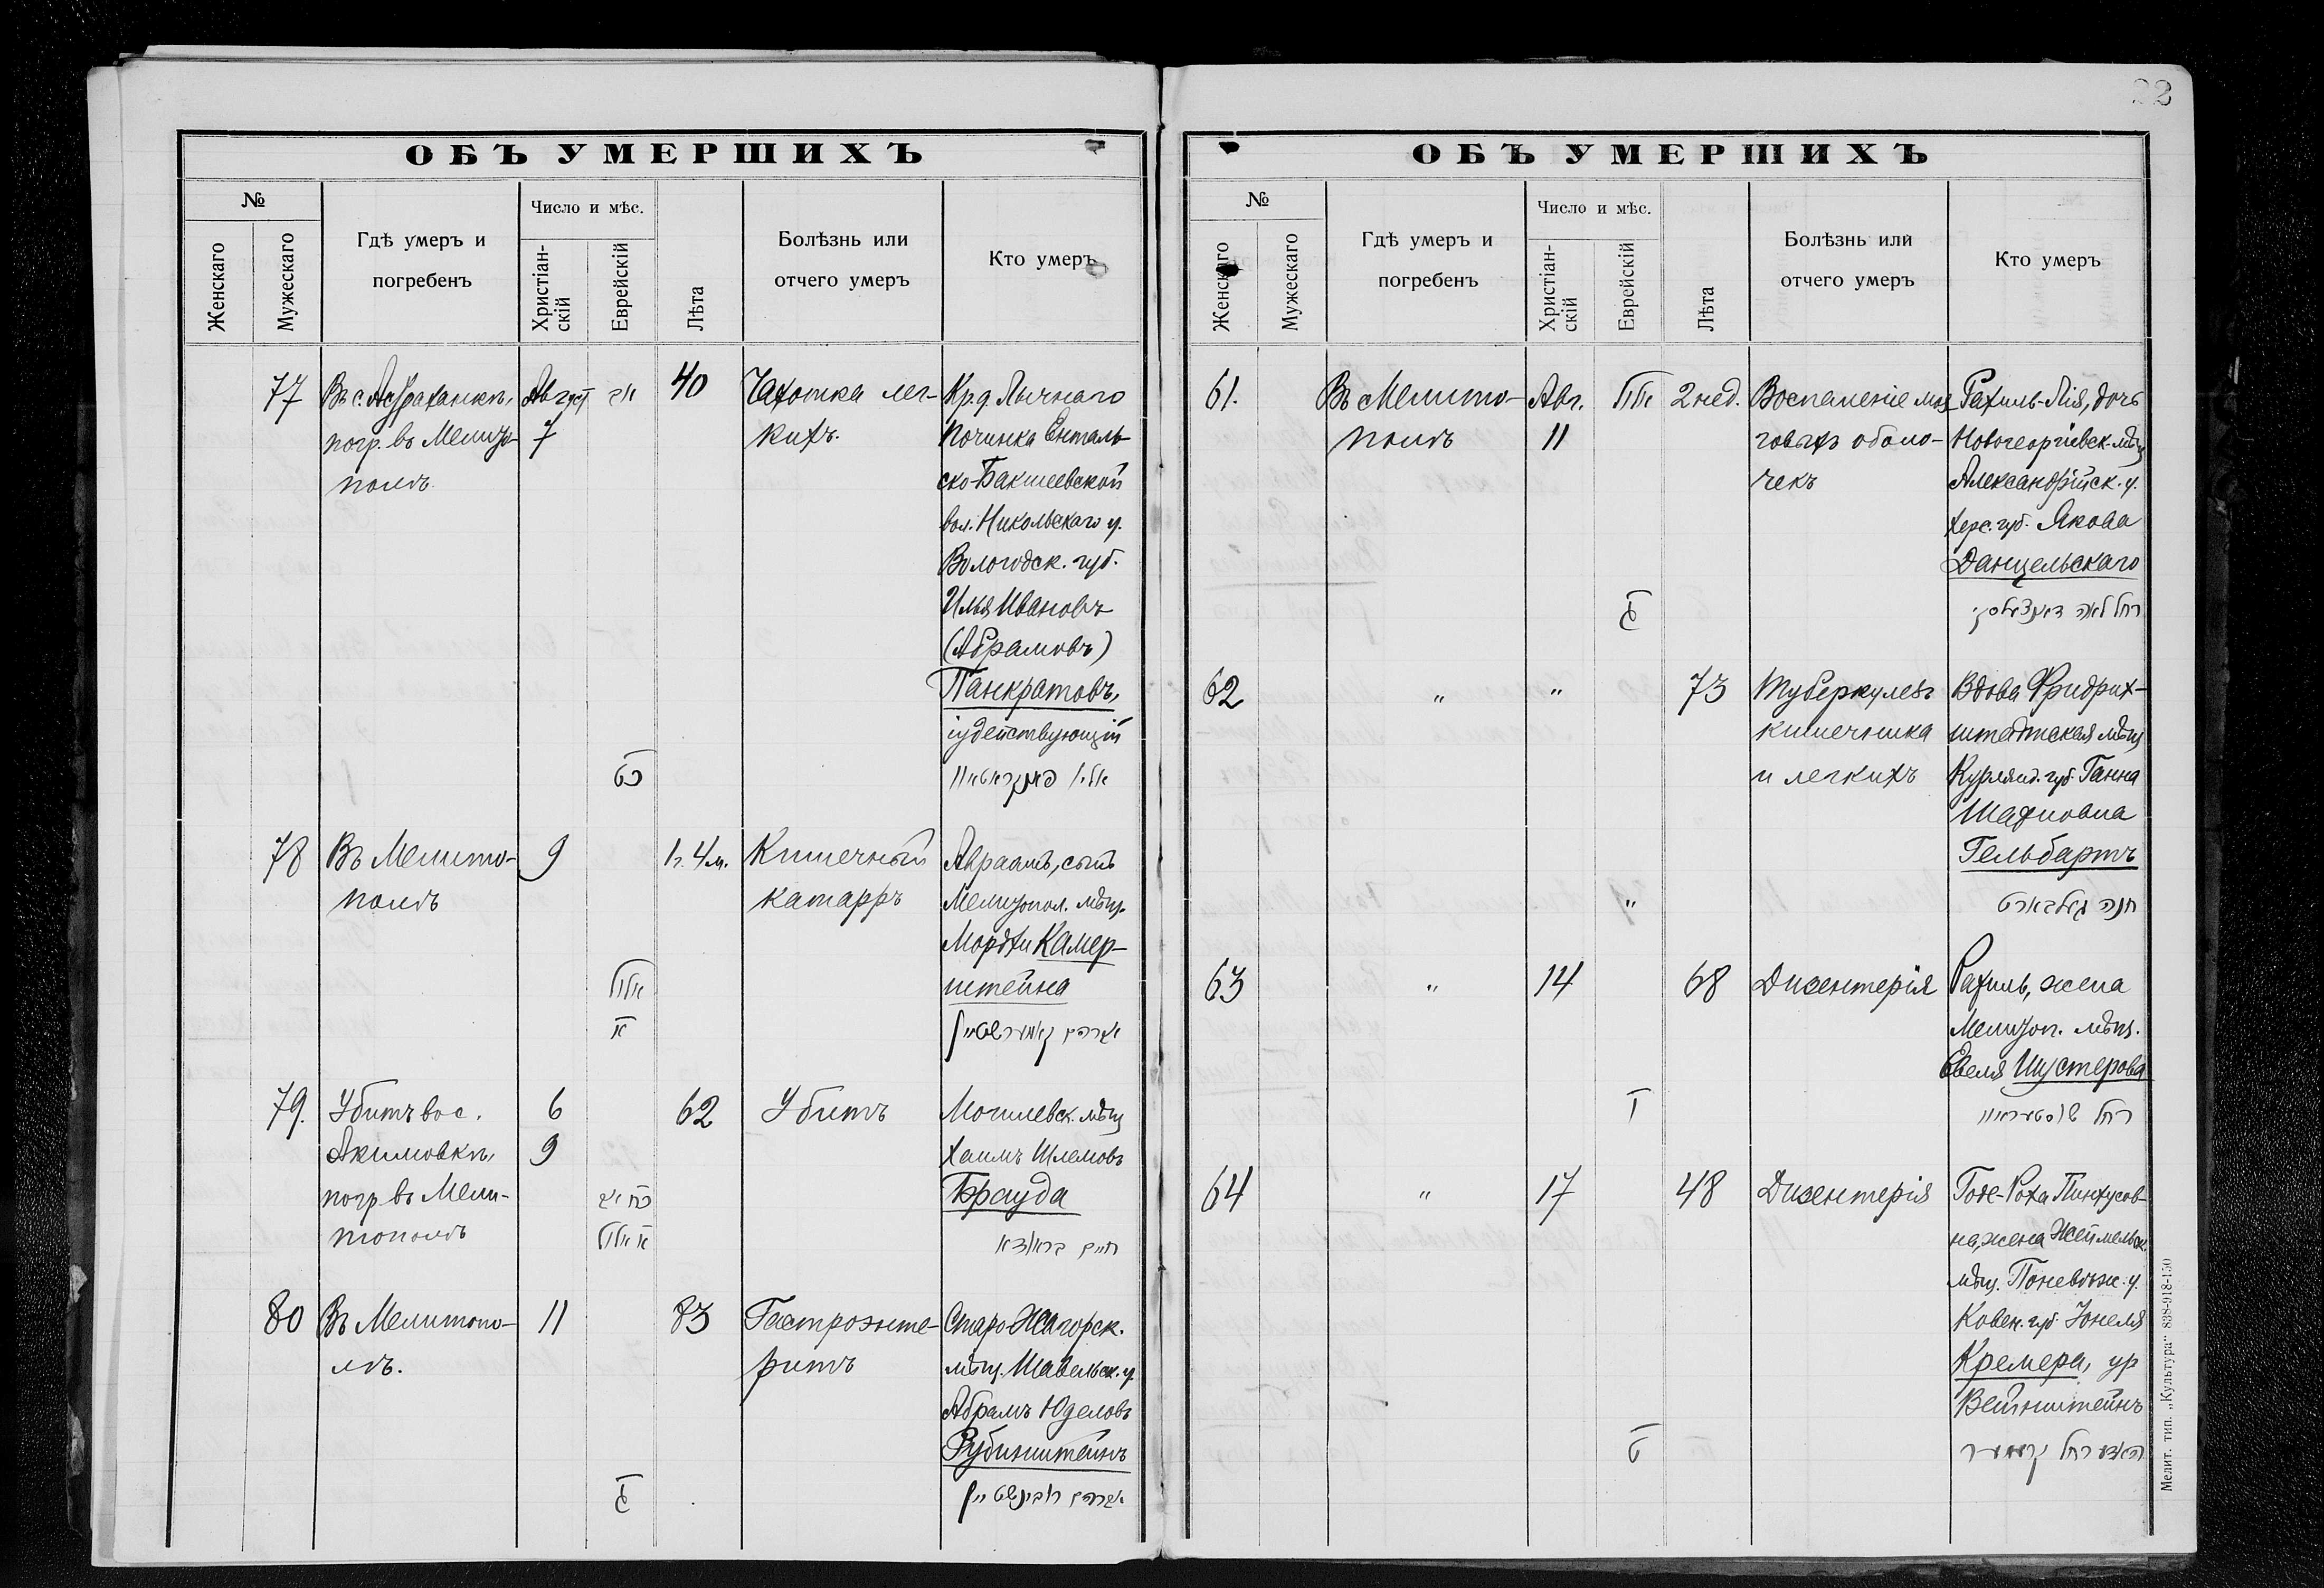 22
ОБЪ УМЕРШИХЪ
№
Женскаго
Мужескаго
Гдѣ умеръ и
погребенъ
Число и мѣс.
Христіан-
скій
Еврейскій
Лѣта
Болѣзнь или
отчего умеръ
Кто умеръ
77
Въ с. Астраханкѣ,
погр. въ Мелито-
полѣ
Август
7
אב
כט
40
Чахотка лег-
кихъ.
Кр. д. Лычнаго
Починка Енталь-
ско-Бакшеевской
вол. Никольскаго у.
Вологодск. губ.
Илья Ивановъ
(Абрамовъ)
Панкратовъ,
іудействующій
78
Въ Мелито-
полѣ
9
אלול
א
1 г. 4 м.
Кишечный
катарръ
Авраамъ, сынъ
Мелитопол. мѣщ.
Мордхи Камер-
штейна
אברהם קאמערשטיין
79.
Убитъ въ с.
Акимовкѣ,
погр. въ Мели-
тополѣ
6
9
כח אב
א אלול
62
Убитъ
Могилевск. мѣщ
Хаимъ Шлемовъ
Брауда
חיים בראודא
80
Въ Мелитопо-
лѣ.
11
ג
83
Гастроэнте-
ритъ
Старо-Жагорск.
мѣщ. Шавельск. у.
Абрамъ Юделовъ
Рубинштейнъ
אברהם רובינשטיין
ОБЪ УМЕРШИХЪ
№
Женскаго
Мужескаго
Гдѣ умеръ и
погребенъ
Число и мѣс.
Христіан-
скій
Еврейскій
Лѣта
Болѣзнь или
отчего умеръ
Кто умеръ
61.
Въ Мелито-
полѣ
Авг.
11
אלול
ג
2 нед.
Воспаленіе моз-
говыхъ оболо-
чекъ
Рахиль-Лія, дочь
Новогеоргіевск. мѣщ
Александрійск. у.
Херс. губ. Якова
Данцельскаго
62
"
"
"
73
Туберкулезъ
кишечника
и легкихъ
Вдова Фридрих-
штадтская мѣщ
Курлянд. губ. Ганна
Шахновна
Гельбартъ
חנה געלבארט
63
"
14
ו
68
Дизентерія
Рахиль, жена
Мелитоп. мѣщ.
Евеля Шустерова
רחל שוסטעראוו
64
"
17
ט
48
Дизентерія
Годе-Роха Пинхусов-
на, жена Жеймельск.
мѣщ. Поневѣж. у.
Ковен. губ. Іонеля
Кремера, ур
Вейнштейнъ
Мелит. тип. „Культура“ 838-918-150